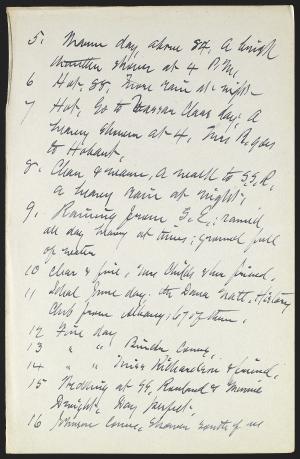 5. Warm day, above 84. A brisk
shower at 4 P.M.
6 Hot. 88. More rain at night—
7 Hot, Go to Vassar Class day; A
heavy shower at 4. Mrs B. goes
to Hobart.
8. Clear & warm, A walk to S.S.R.
A heavy rain at night.
9. Raining from S.E.; rained
all day heavy at times; ground full
of water
10 clear & fine, Mrs Childs & her friend.
11 Ideal June day: the Dana Natl. History
Club from Albany; 67 of them.
12 Fine day
13 " " Binder Comes,
14 " " Miss Richardson & friend.
15 Wedding at SS, Rowland & Minnie
Dwight. Day perfect.
16 Johnson Comes, Shower south of us